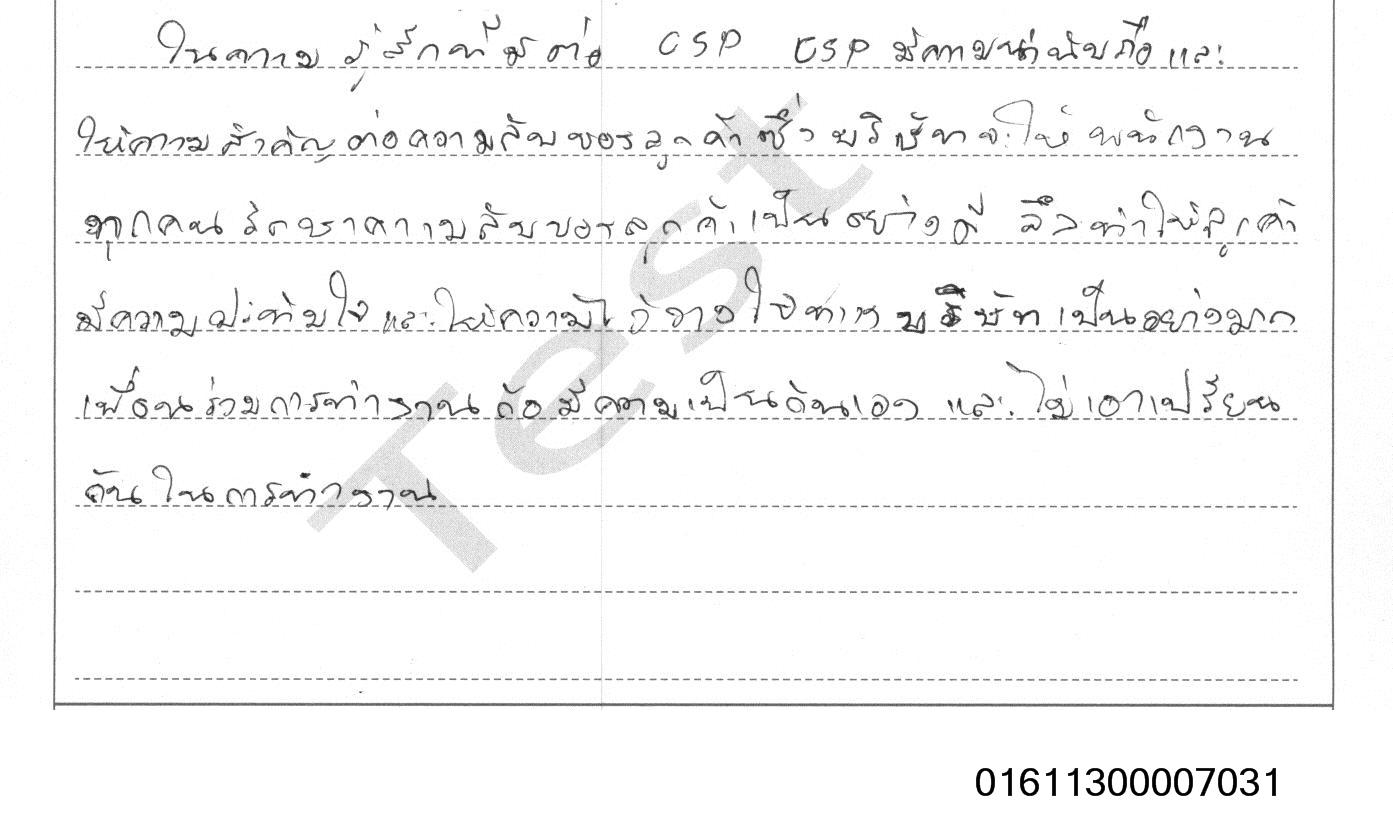 ในความรู้สึกที่มีต่อ CSP CSP มีความน่านับถือและ
ให้ความสำคัญต่อความลับของลูกค้าซึ่งบริษัทจะให้พนักงาน
ทุกคนรักษาความลับของลูกค้าเป็นอย่างดี จึงทำให้ลูกค้า
มีความประทับใจและให้ความไว้วางใจทางบริษัทเป็นอย่างมาก
เพื่อนร่วมการทำงานก็มีความเป็นกันเอง และไม่เอาเปรียบ
กันในการทำงาน
Test
01611300007031